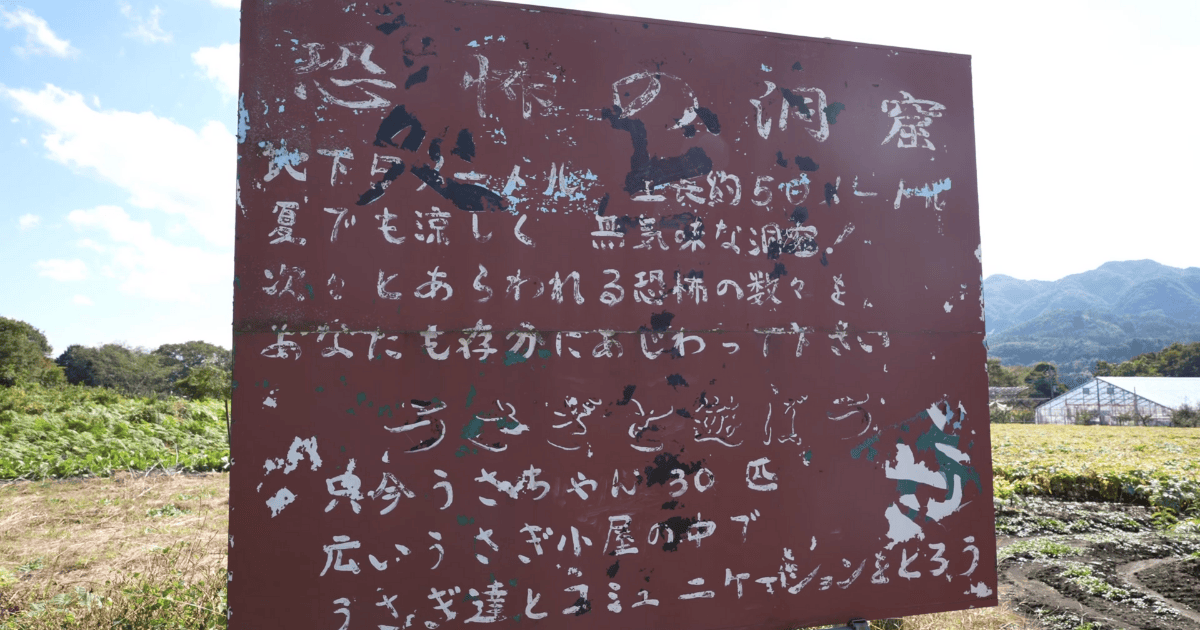 恐怖の洞窟
地下タイムトンネル 全長約50メートル
夏でも涼しく 無気味な洞窟!
次々とあらわれる恐怖の数々を、
あなたも存分にあじわって下さい
うさぎと遊ぼう
只今うさちゃん30匹
広いうさぎ小屋の中で
うさぎ達とコミュニケイションをとろう